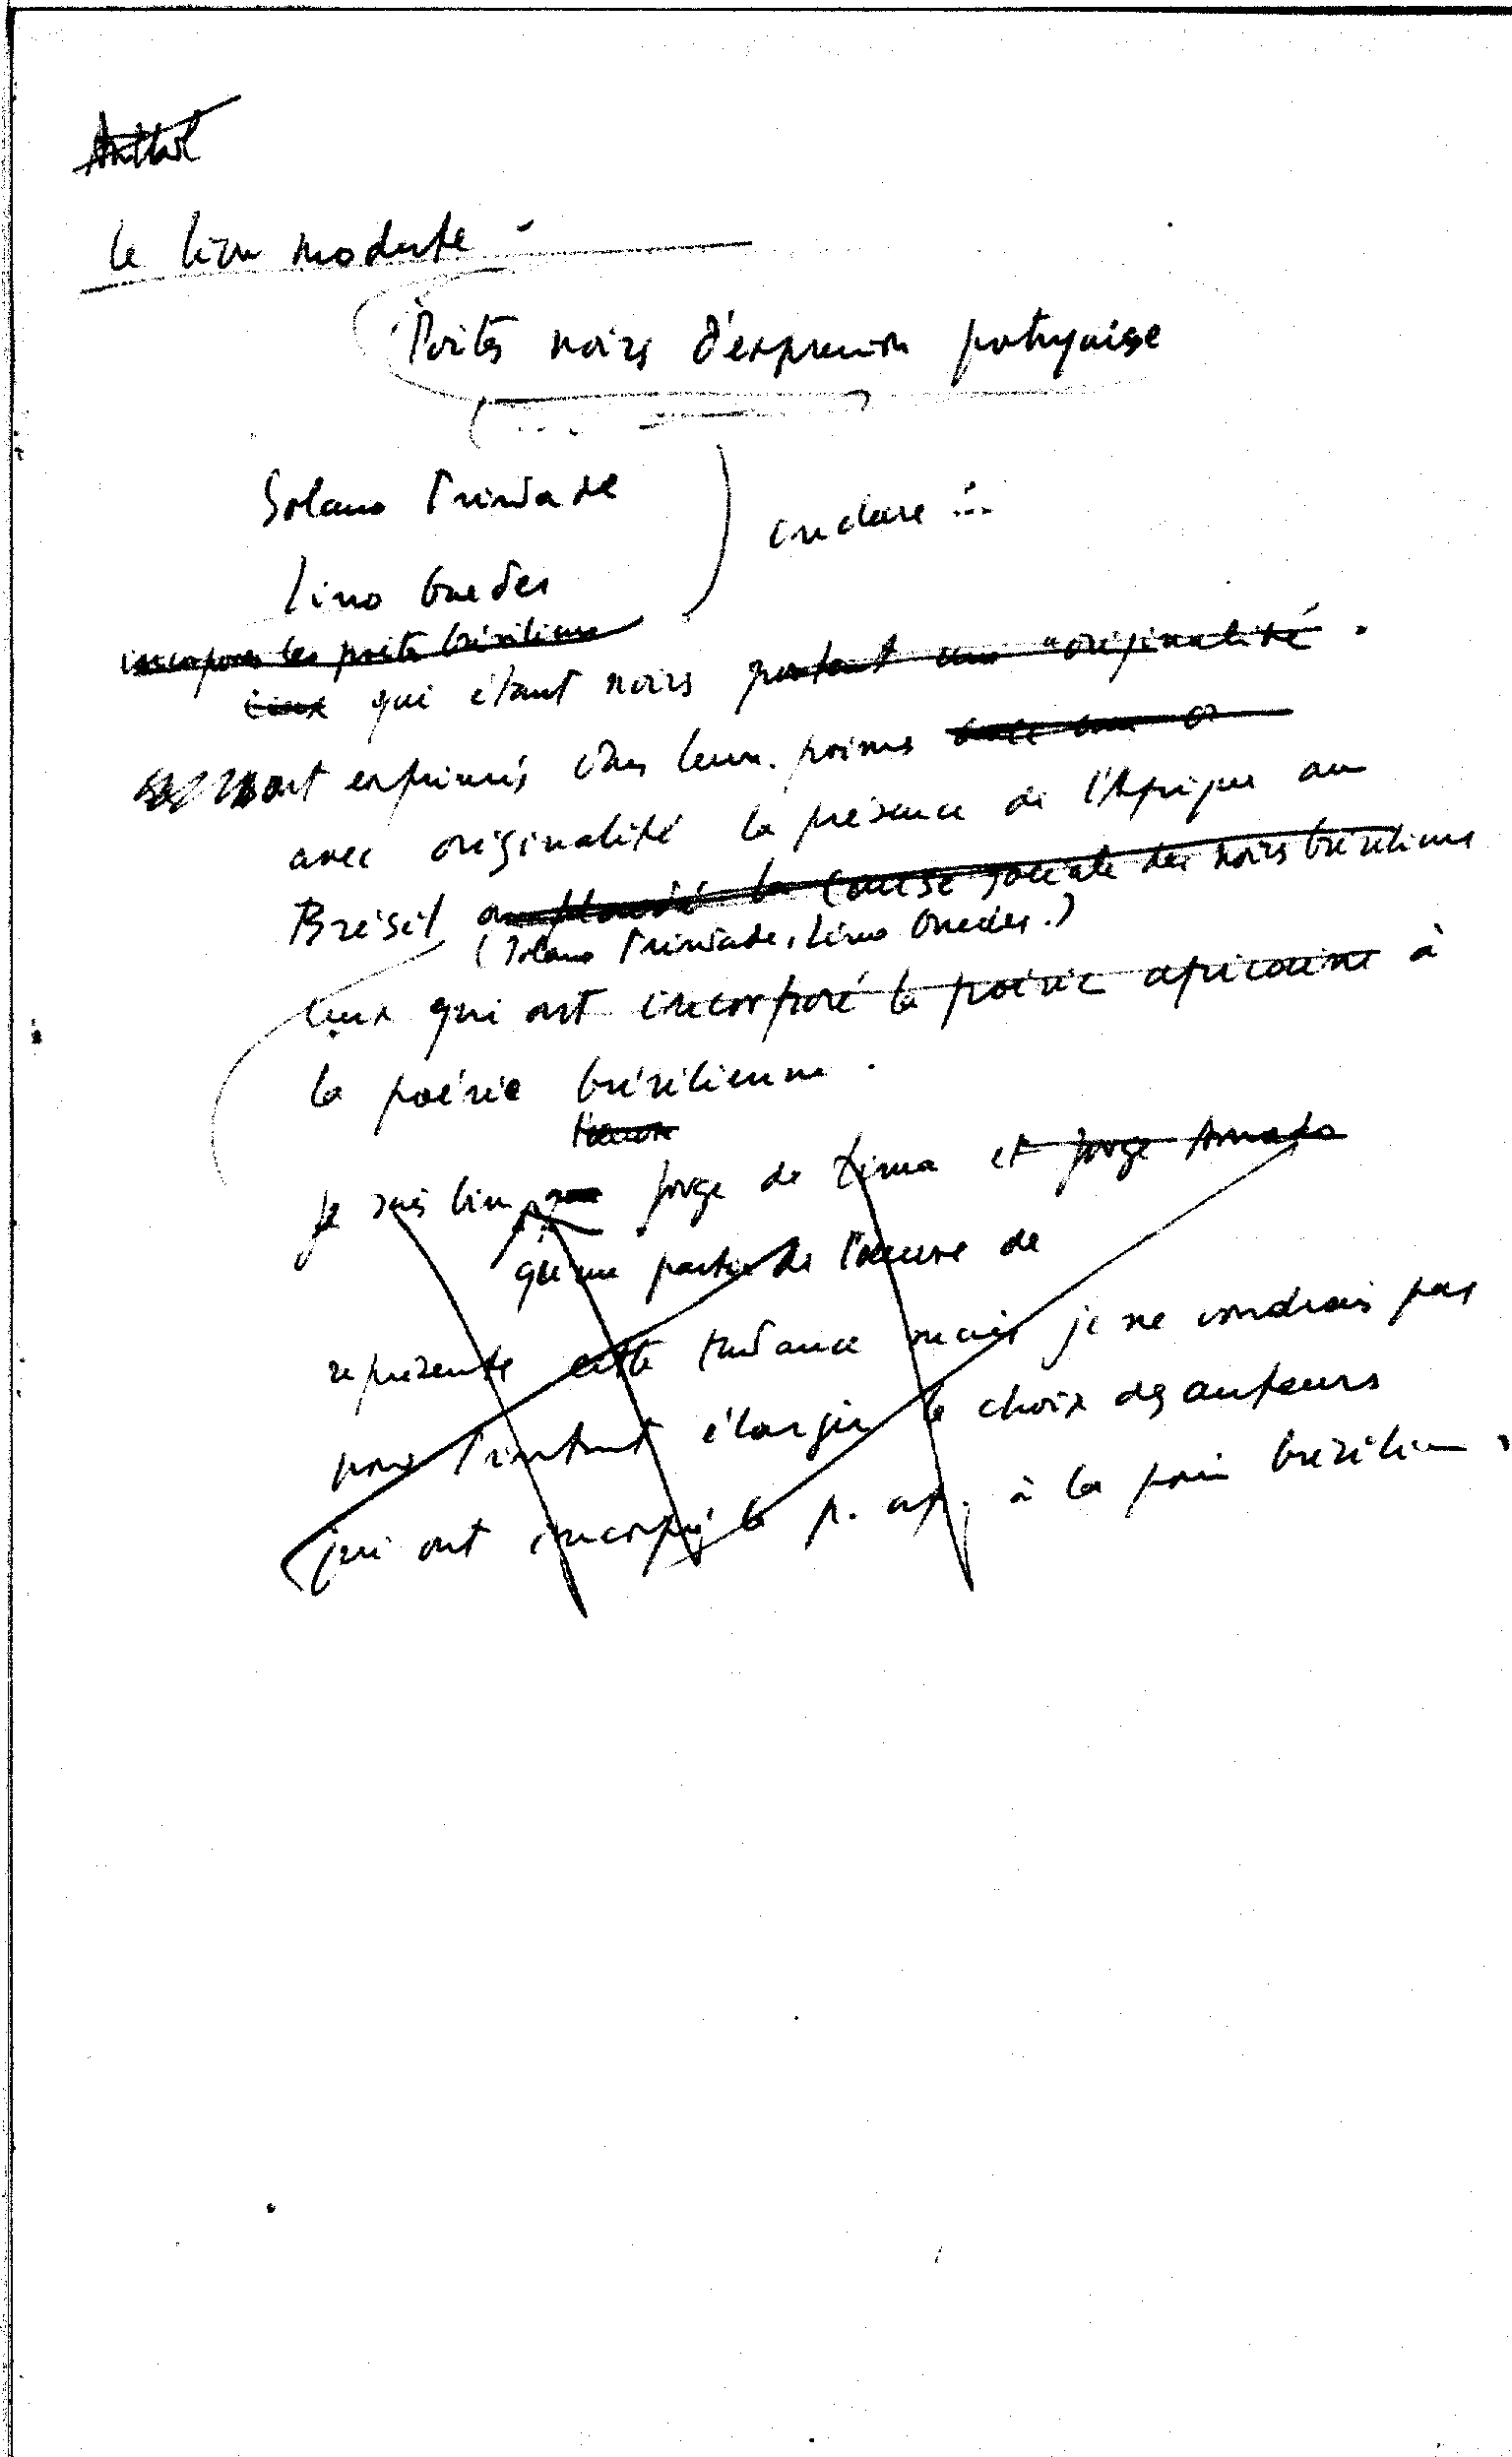 Anthol
le lien modeste -
Poètes noirs d'expression portugaise
Solano Trindade
Lino Guedes
inclure :..
incorporer les poètes brésiliens
Ceux qui étant noirs portant une "originalité.
ont exprimés dans leurs poèmes avec une o
avec originalité la présence de l'Afrique au
Brésil la cause sociale des noirs brésiliens
(Solano Trindade, Lino Guedes.)
Ceux qui ont incorporé la poésie africaine à
la poésie brésilienne.
l'œuvre
Je sais bien que Jorge de Lima et Jorge Amado
qu'une partie de l'œuvre de
représente cette tendance mais je ne voudrais pas
pour l'instant élargir le choix des auteurs
qui ont incorporé la p. af. à la poésie brésilienne.